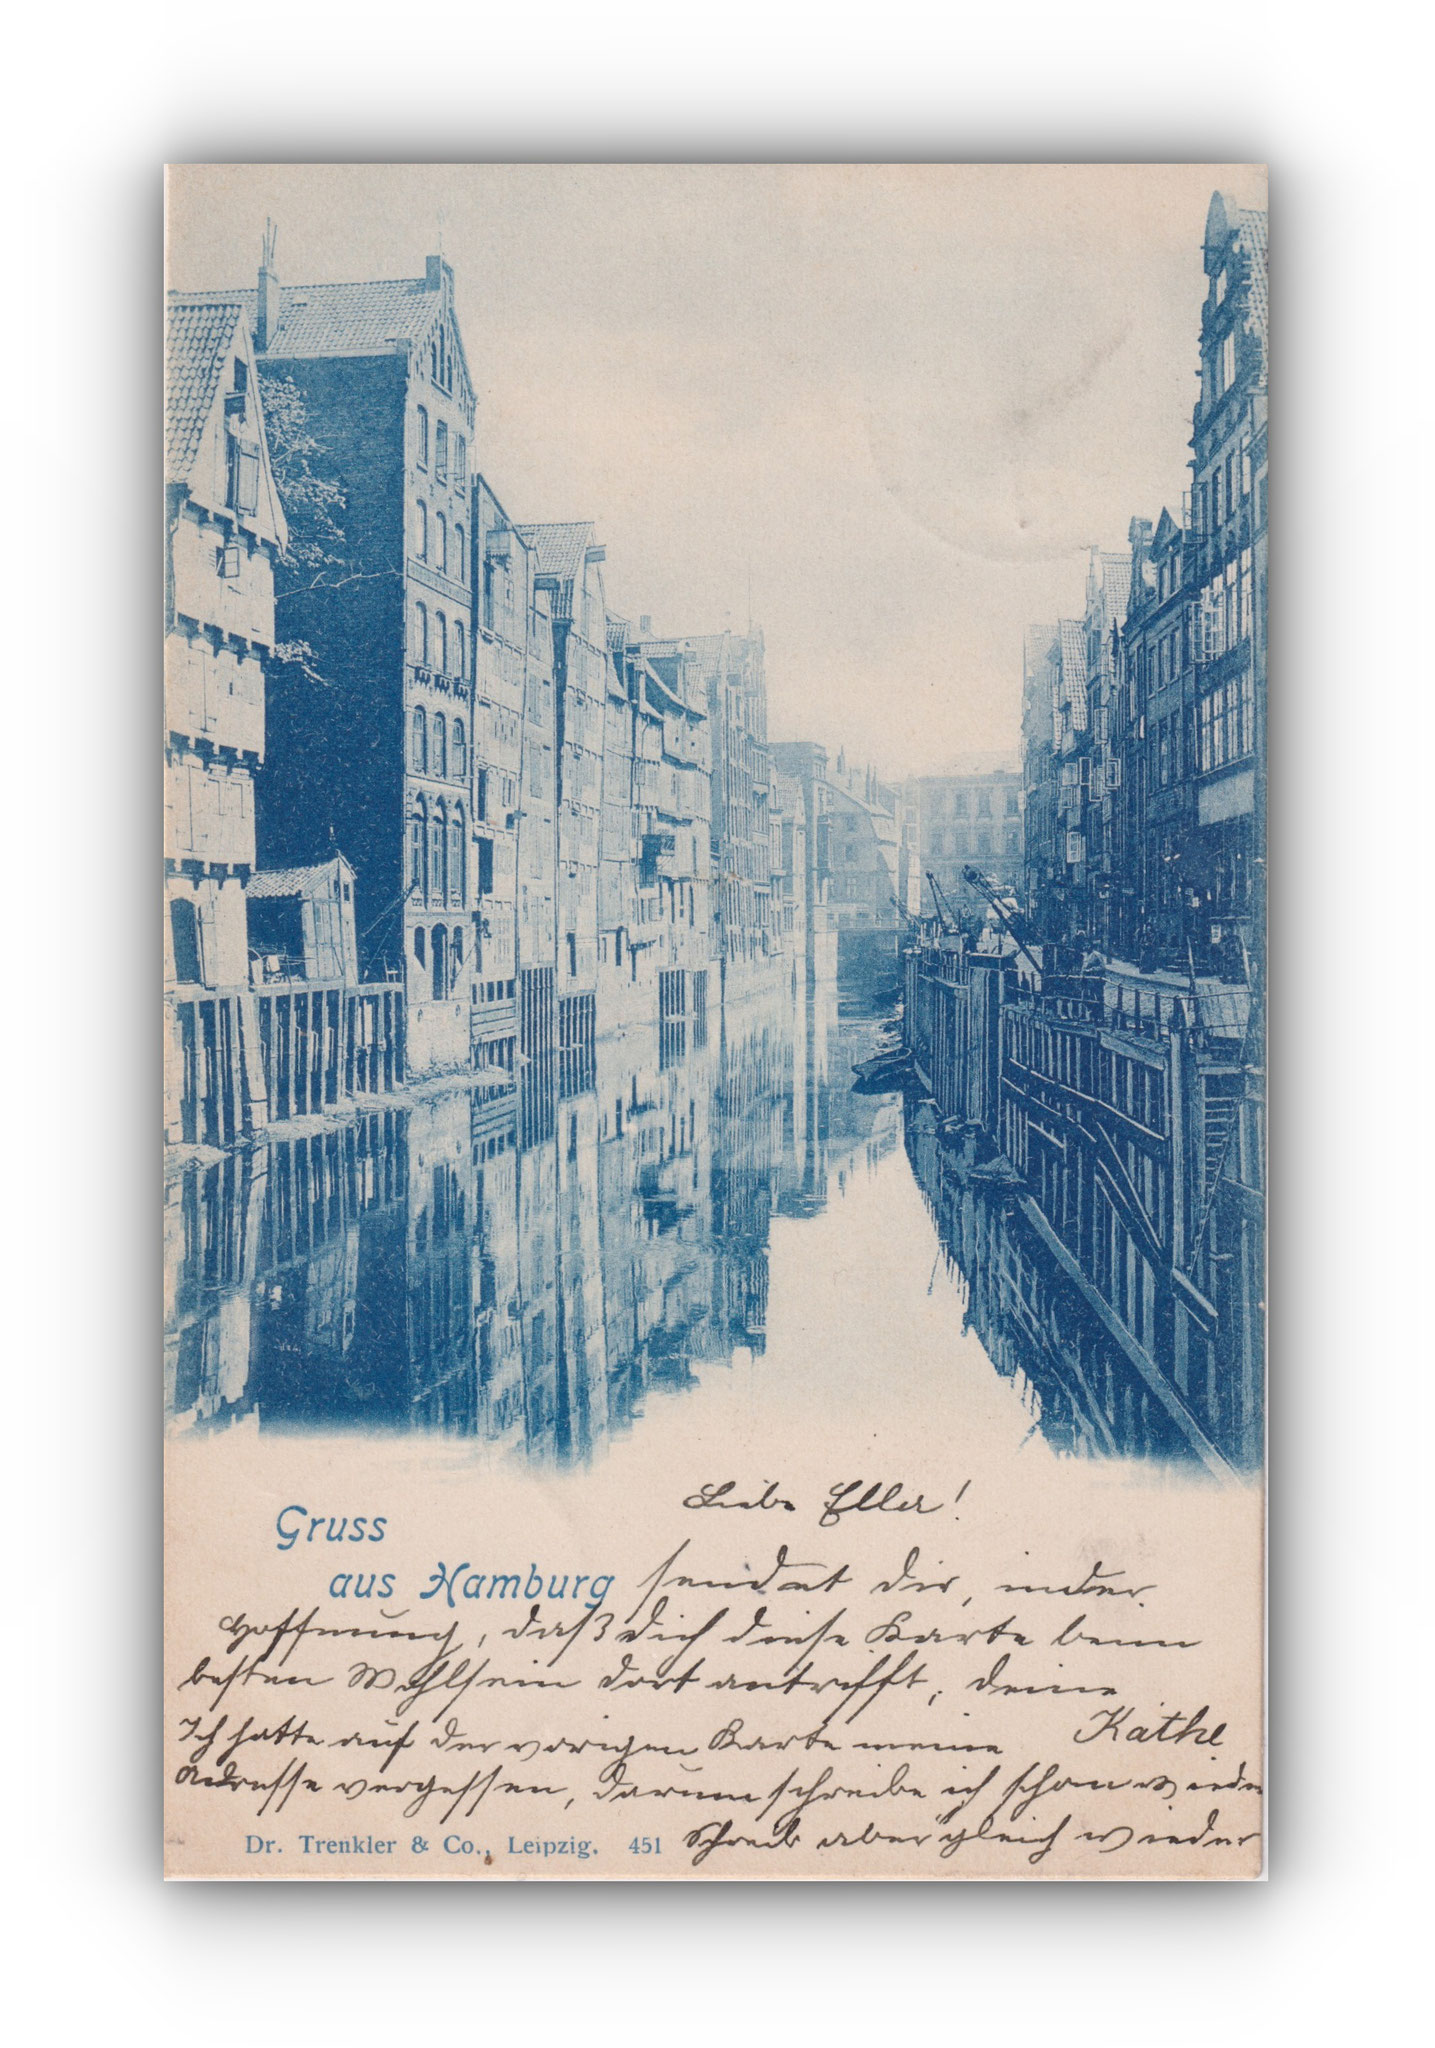 Liebe Ella!
Gruss
aus Hamburg
sendet dir, in der
Hoffnung, daß dich diese Karte beim
besten Wohlsein dort antrifft, deine
Käthe
Ich hatte auf der vorigen Karte meine
Adresse vergessen, darum schreibe ich schon wieder
Schreib aber gleich wieder
Dr. Trenkler & Co., Leipzig. 451